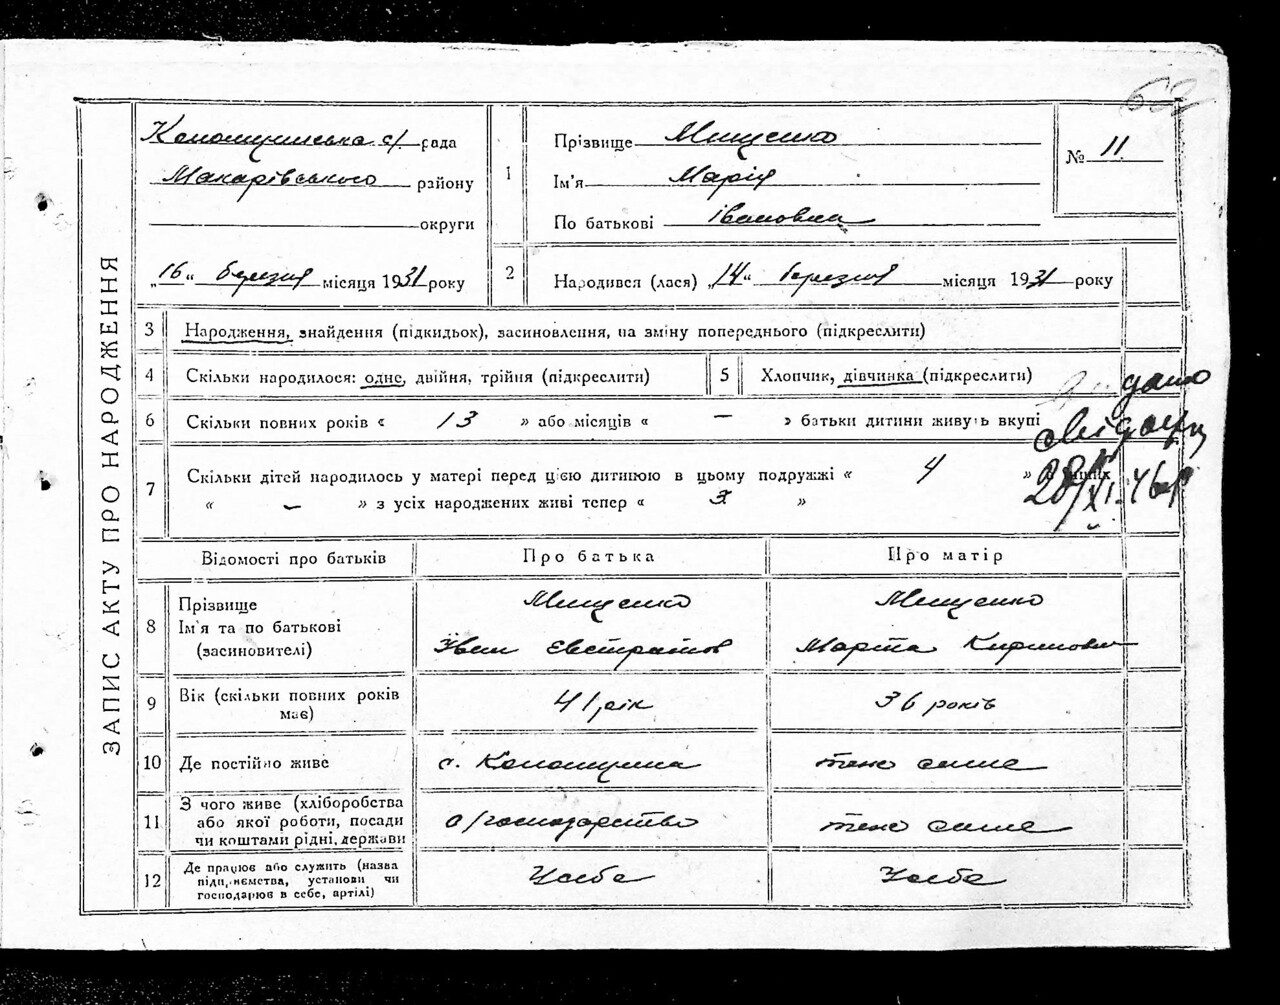 62
ЗАПИС АКТУ ПРО НАРОДЖЕННЯ
с/ рада
Макарівського району
округи
„16“ березня місяця 1931 року
1
Прізвище Мищенко
Ім'я Марія
По батькові Івановна
№ 11
2
Народився (лася) „14“ березня місяця 1931 року
3 Народження, знайдення (підкидьок), засиновлення, на зміну попереднього (підкреслити)
4 Скільки народилося: одне, двійня, трійня (підкреслити)
5 Хлопчик, дівчинка (підкреслити)
6 Скільки повних років « 13 » або місяців « — » батьки дитини живуть вкупі
7 Скільки дітей народилось у матері перед цією дитиною в цьому подружжі « 4 » в інших
« — » з усіх народжених живі тепер « 3 »
дано
28/XI-46р
Відомості про батьків Про батька Про матір
8 Прізвище
Ім'я та по батькові
(засиновителі)
Мищенко
Іван Євстратов
Мищенко
Марта
9 Вік (скільки повних років
має)
41 рік
36 років
10 Де постійно живе
с.
теж саме
11 З чого живе (хліборобства
або якої роботи, посади
чи коштами рідні, держави
с/господарство
теж саме
12 Де працює або служить (назва
підприємства, установи чи
господарює в себе, артілі)